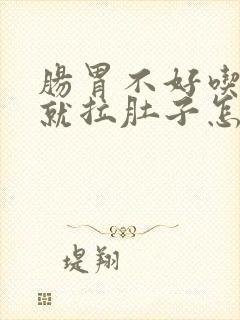 腸胃不好喫
就拉肚子怎
堤翔